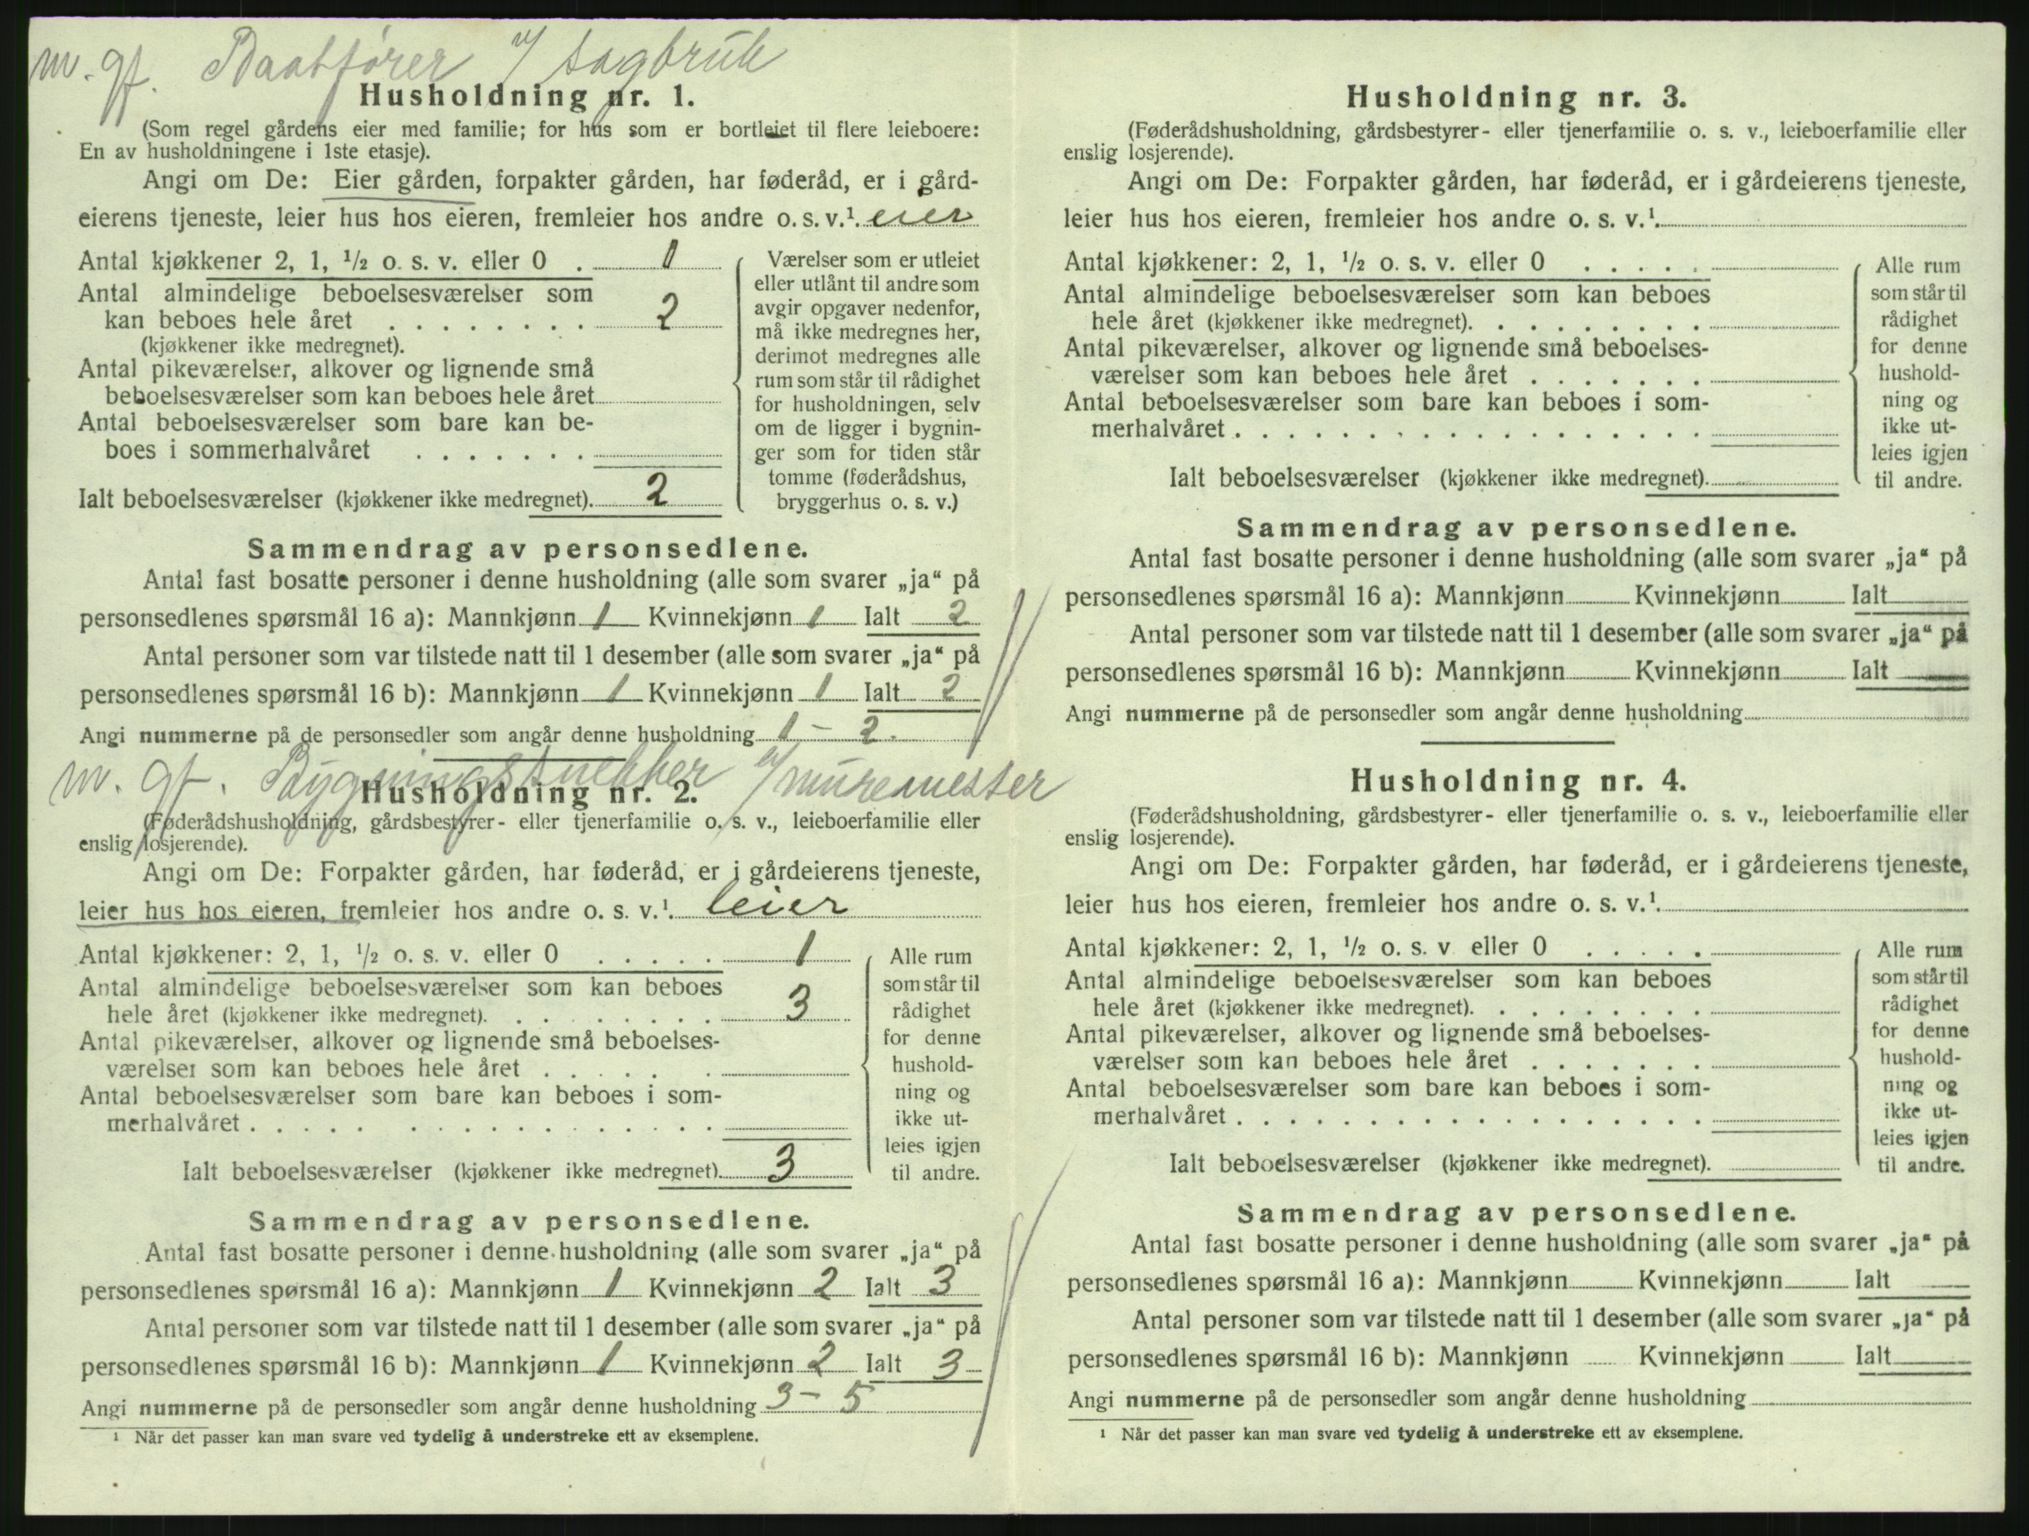 m. gf. Baatfører v/ sagbruk
Husholdning nr. 1.
(Som regel gårdens eier med familie; for hus som er bortleiet til flere leieboere:
En av husholdningene i 1ste etasje).
Angi om De: Eier gården, forpakter gården, har føderåd, er i gård-
eierens tjeneste, leier hus hos eieren, fremleier hos andre o. s. v.¹. eier
Antal kjøkkener 2, 1, ½ o. s. v. eller 0 . 1
Antal almindelige beboelsesværelser som
kan beboes hele året . . . . . . . . 2
(kjøkkener ikke medregnet).
Antal pikeværelser, alkover og lignende små
beboelsesværelser som kan beboes hele året
Antal beboelsesværelser som bare kan be-
boes i sommerhalvåret . . . . . . .
Ialt beboelsesværelser (kjøkkener ikke medregnet). 2
Værelser som er utleiet
eller utlånt til andre som
avgir opgaver nedenfor,
må ikke medregnes her,
derimot medregnes alle
rum som står til rådighet
for husholdningen, selv
om de ligger i bygnin-
ger som for tiden står
tomme (føderådshus,
bryggerhus o. s. v.)
Sammendrag av personsedlene.
Antal fast bosatte personer i denne husholdning (alle som svarer „ja“ på
personsedlenes spørsmål 16 a): Mannkjønn 1 Kvinnekjønn 1 Ialt 2
Antal personer som var tilstede natt til 1 desember (alle som svarer „ja“ på
personsedlenes spørsmål 16 b): Mannkjønn 1 Kvinnekjønn 1 Ialt 2
Angi nummerne på de personsedler som angår denne husholdning 1 - 2.
m. gf. Bygningssnekker v/ muremester
Husholdning nr. 2.
(Føderådshusholdning, gårdsbestyrer- eller tjenerfamilie o. s. v., leieboerfamilie eller
enslig losjerende).
Angi om De: Forpakter gården, har føderåd, er i gårdeierens tjeneste,
leier hus hos eieren, fremleier hos andre o. s. v.¹. leier
Antal kjøkkener: 2, 1, ½ o. s. v. eller 0 . . . . . 1
Antal almindelige beboelsesværelser som kan beboes
hele året (kjøkkener ikke medregnet). . . . . . . . . 3
Antal pikeværelser, alkover og lignende små beboelses-
værelser som kan beboes hele året . . . . . . .
Antal beboelsesværelser som bare kan beboes i som-
merhalvåret . . . . . . . . . . . . . . . . . .
Ialt beboelsesværelser (kjøkkener ikke medregnet). 3
Alle rum
som står til
rådighet
for denne
hushold-
ning og
ikke ut-
leies igjen
til andre.
Sammendrag av personsedlene.
Antal fast bosatte personer i denne husholdning (alle som svarer „ja“ på
personsedlenes spørsmål 16 a): Mannkjønn 1 Kvinnekjønn 2 Ialt 3
Antal personer som var tilstede natt til 1 desember (alle som svarer „ja“ på
personsedlenes spørsmål 16 b): Mannkjønn 1 Kvinnekjønn 2 Ialt 3
Angi nummerne på de personsedler som angår denne husholdning 3 - 5
¹ Når det passer kan man svare ved tydelig å understreke ett av eksemplene.
Husholdning nr. 3.
(Føderådshusholdning, gårdsbestyrer- eller tjenerfamilie o. s. v., leieboerfamilie eller
enslig losjerende).
Angi om De: Forpakter gården, har føderåd, er i gårdeierens tjeneste,
leier hus hos eieren, fremleier hos andre o. s. v.¹.
Antal kjøkkener: 2, 1, ½ o. s. v. eller 0 . . . . .
Antal almindelige beboelsesværelser som kan beboes
hele året (kjøkkener ikke medregnet). . . . . . . . .
Antal pikeværelser, alkover og lignende små beboelses-
værelser som kan beboes hele året . . . . . . .
Antal beboelsesværelser som bare kan beboes i som-
merhalvåret . . . . . . . . . . . . . . . . . .
Ialt beboelsesværelser (kjøkkener ikke medregnet).
Alle rum
som står til
rådighet
for denne
hushold-
ning og
ikke ut-
leies igjen
til andre.
Sammendrag av personsedlene.
Antal fast bosatte personer i denne husholdning (alle som svarer „ja“ på
personsedlenes spørsmål 16 a): Mannkjønn Kvinnekjønn Ialt
Antal personer som var tilstede natt til 1 desember (alle som svarer „ja“ på
personsedlenes spørsmål 16 b): Mannkjønn Kvinnekjønn Ialt
Angi nummerne på de personsedler som angår denne husholdning
Husholdning nr. 4.
(Føderådshusholdning, gårdsbestyrer- eller tjenerfamilie o. s. v., leieboerfamilie eller
enslig losjerende).
Angi om De: Forpakter gården, har føderåd, er i gårdeierens tjeneste,
leier hus hos eieren, fremleier hos andre o. s. v.¹.
Antal kjøkkener: 2, 1, ½ o. s. v eller 0 . . . . .
Antal almindelige beboelsesværelser som kan beboes
hele året (kjøkkener ikke medregnet). . . . . . . . .
Antal pikeværelser, alkover og lignende små beboelses-
værelser som kan beboes hele året . . . . . . .
Antal beboelsesværelser som bare kan beboes i som-
merhalvåret . . . . . . . . . . . . . . . . . .
Ialt beboelsesværelser (kjøkkener ikke medregnet).
Alle rum
som står til
rådighet
for denne
hushold-
ning og
ikke ut-
leies igjen
til andre.
Sammendrag av personsedlene.
Antal fast bosatte personer i denne husholdning (alle som svarer „ja“ på
personsedlenes spørsmål 16 a): Mannkjønn Kvinnekjønn Ialt
Antal personer som var tilstede natt til 1 desember (alle som svarer „ja“ på
personsedlenes spørsmål 16 b): Mannkjønn Kvinnekjønn Ialt
Angi nummerne på de personsedler som angår denne husholdning
¹ Når det passer kan man svare ved tydelig å understreke ett av eksemplene.